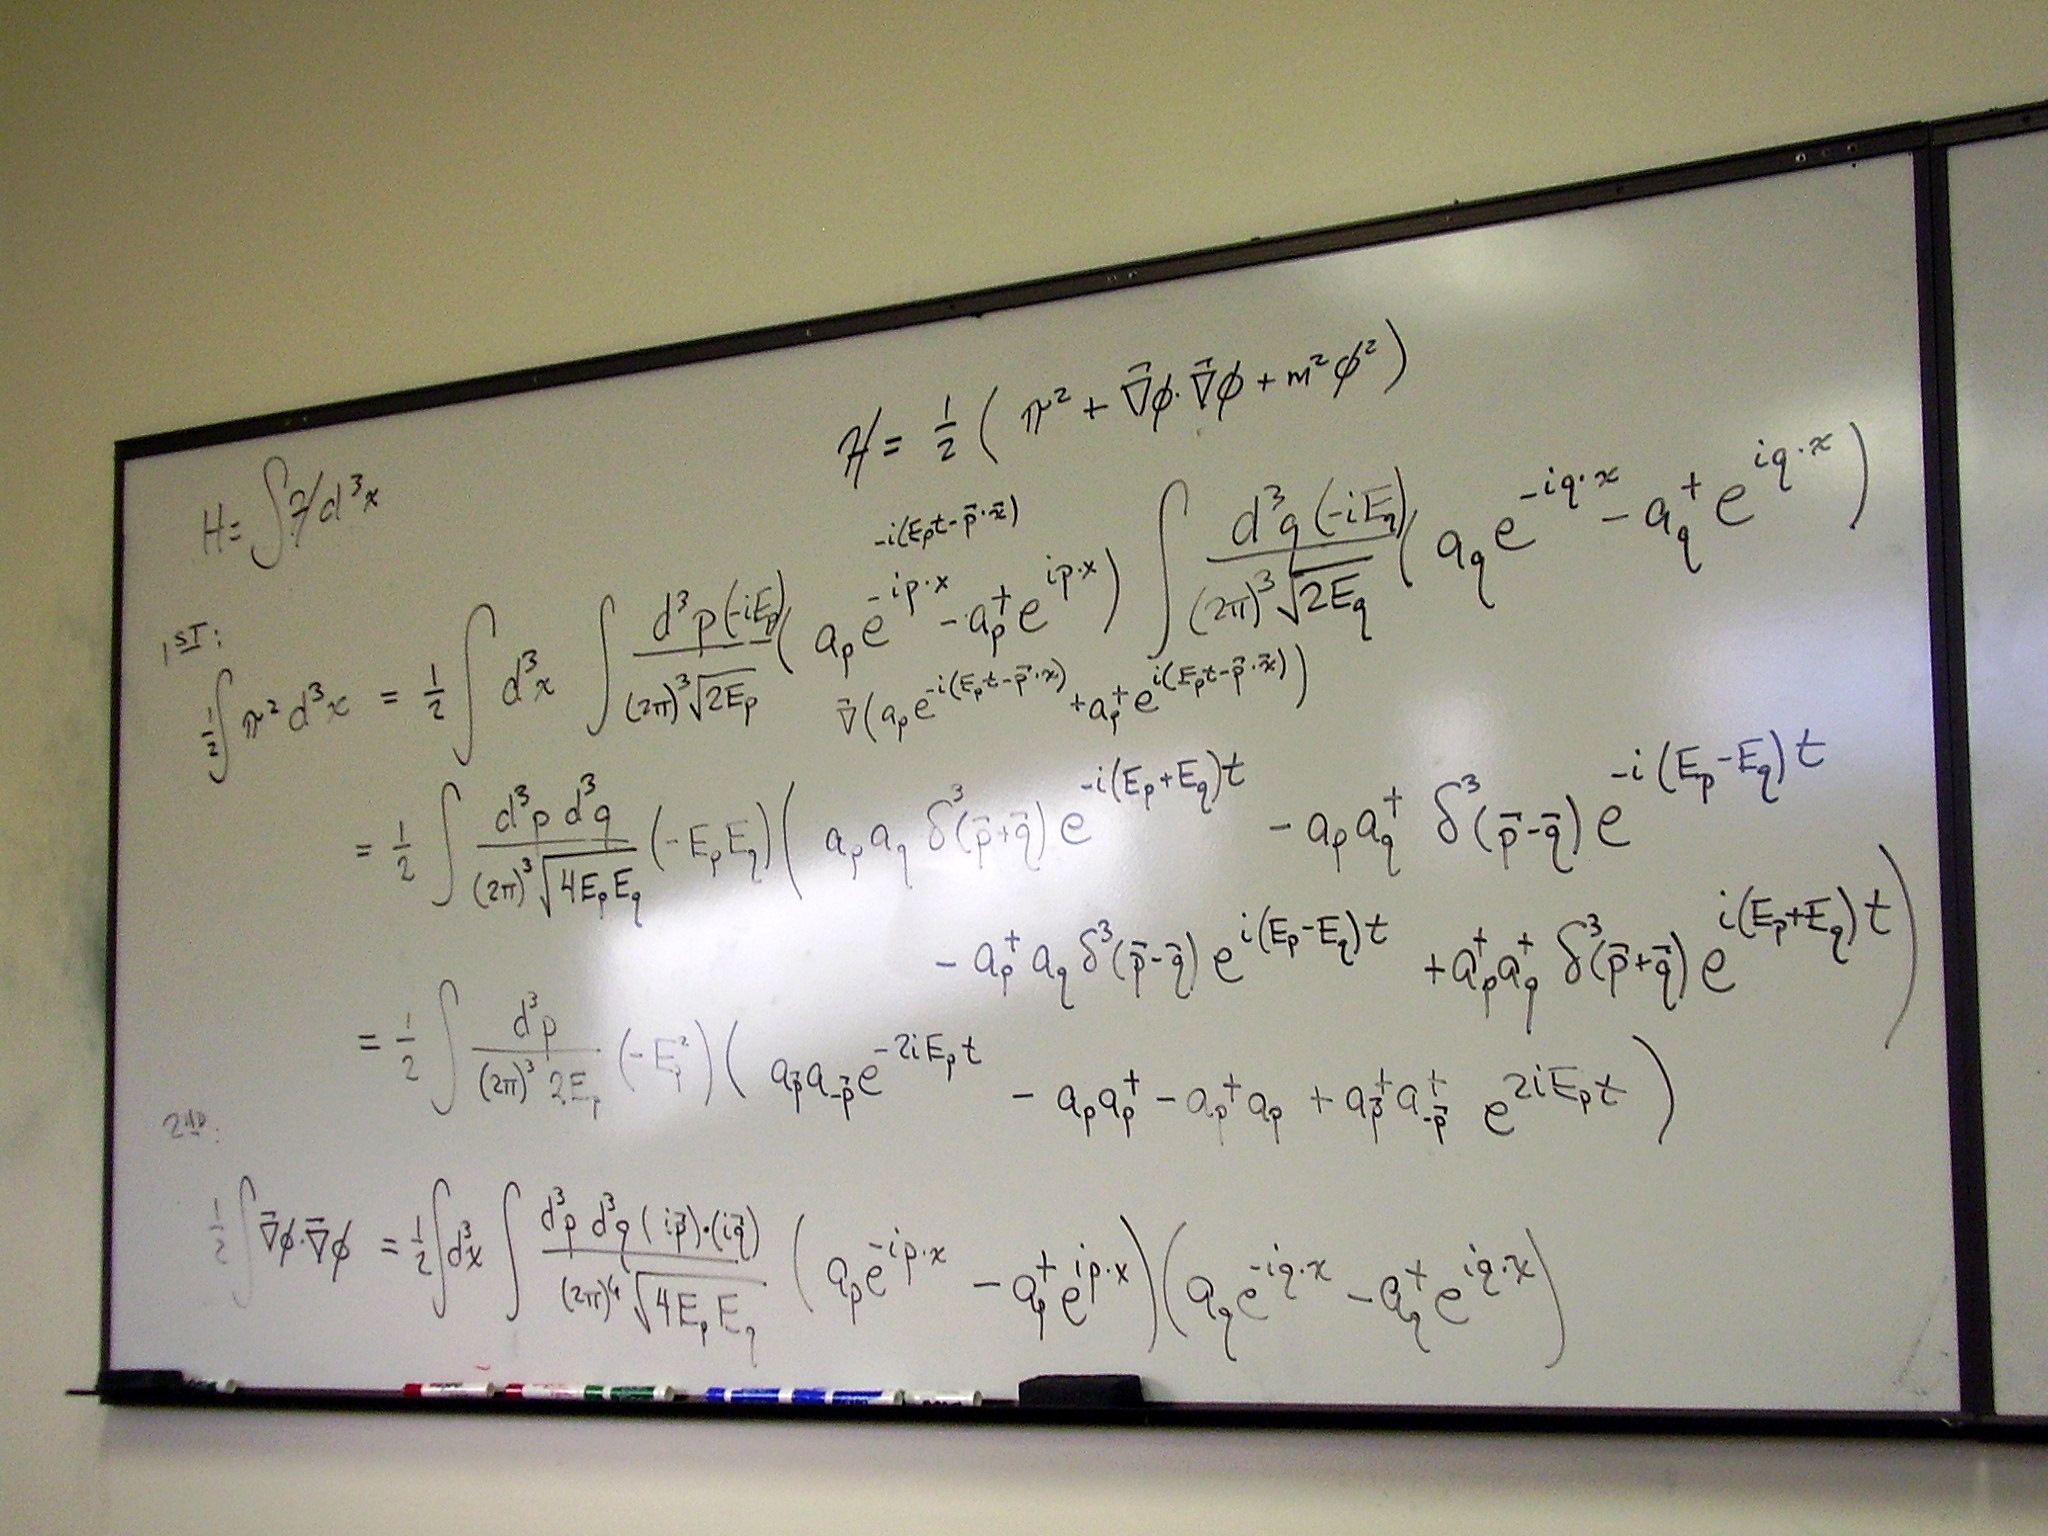 ℋ = 1/2 ( π² + ∇⃗ϕ·∇⃗ϕ + m²ϕ² )
H = ∫ ℋ d³x
1ST:
-i(E_p t - p⃗·x⃗)
1/2 ∫ π² d³x = 1/2 ∫ d³x ∫ d³p (-iE_p) / (2π)³ √(2E_p) ( a_p e^{-ip·x} - a_p† e^{ip·x} ) ∫ d³q (-iE_q) / (2π)³ √(2E_q) ( a_q e^{-iq·x} - a_q† e^{iq·x} )
∇⃗( a_p e^{-i(E_p t - p⃗·x)} + a_p† e^{i(E_p t - p⃗·x⃗)} )
= 1/2 ∫ d³p d³q / (2π)³ √(4E_p E_q) (-E_p E_q) ( a_p a_q δ³(p⃗+q⃗) e^{-i(E_p+E_q)t} - a_p a_q† δ³(p⃗-q⃗) e^{-i(E_p-E_q)t}
- a_p† a_q δ³(p⃗-q⃗) e^{i(E_p-E_q)t} + a_p† a_q† δ³(p⃗+q⃗) e^{i(E_p+E_q)t} )
= 1/2 ∫ d³p / (2π)³ 2E_p (-E_p²) ( a_p⃗ a_-p⃗ e^{-2iE_p t} - a_p a_p† - a_p† a_p + a_p⃗† a_-p⃗† e^{2iE_p t} )
2ND:
1/2 ∫ ∇⃗ϕ·∇⃗ϕ = 1/2 ∫ d³x ∫ d³p d³q (ip⃗)·(iq⃗) / (2π)⁶ √(4E_p E_q) ( a_p e^{-ip·x} - a_p† e^{ip·x} )( a_q e^{-iq·x} - a_q† e^{iq·x} )